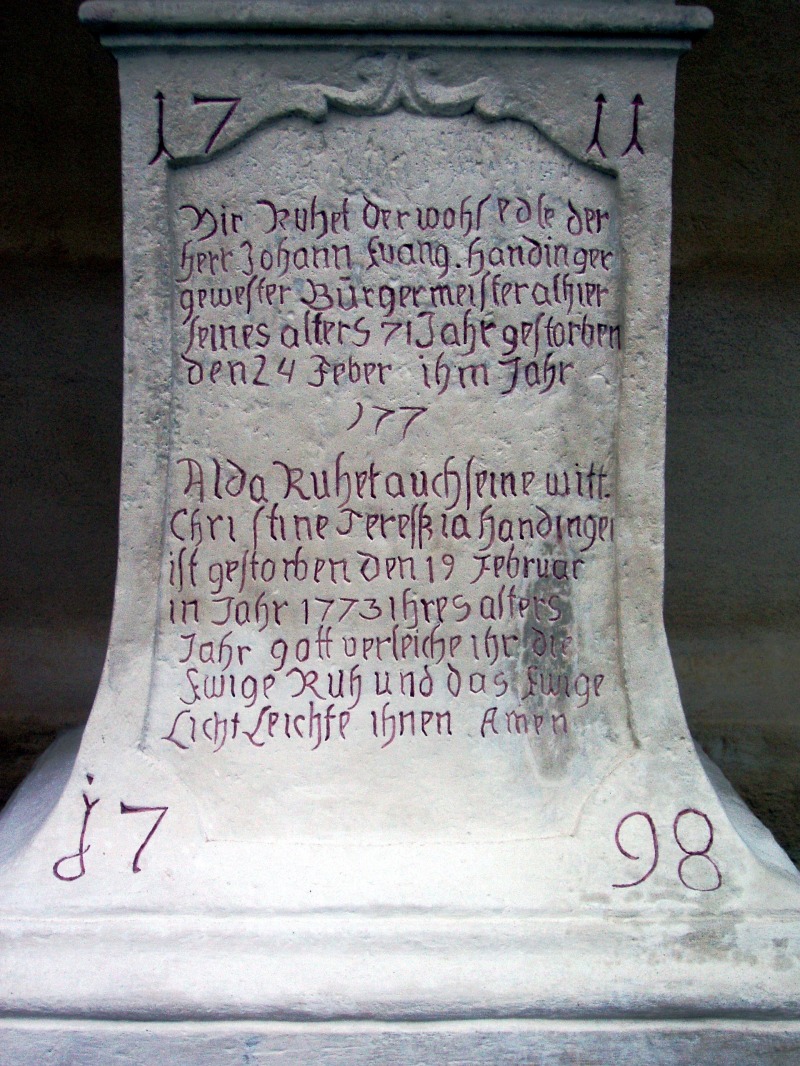 17 11
Hir Ruhet der wohl edle der
herr Johann Evang. Handinger
gewester Bürgermeister alhier
seines alters 71 Jahr gestorben
den 24 Feber ihm Jahr
177
Alda Ruhet auch seine witt.
Christine Teressia Handinger
ist gestorben den 19 Februar
in Jahr 1773 ihres alters
Jahr gott verleiche ihr die
Ewige Ruh und das Ewige
Licht Leichte ihnen Amen
17 98